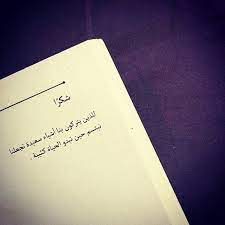 شكرًا
للذين يتركون بنا أشياء سعيدة تجعلنا
نبتسم حين تبدو الحياة كئيبة .